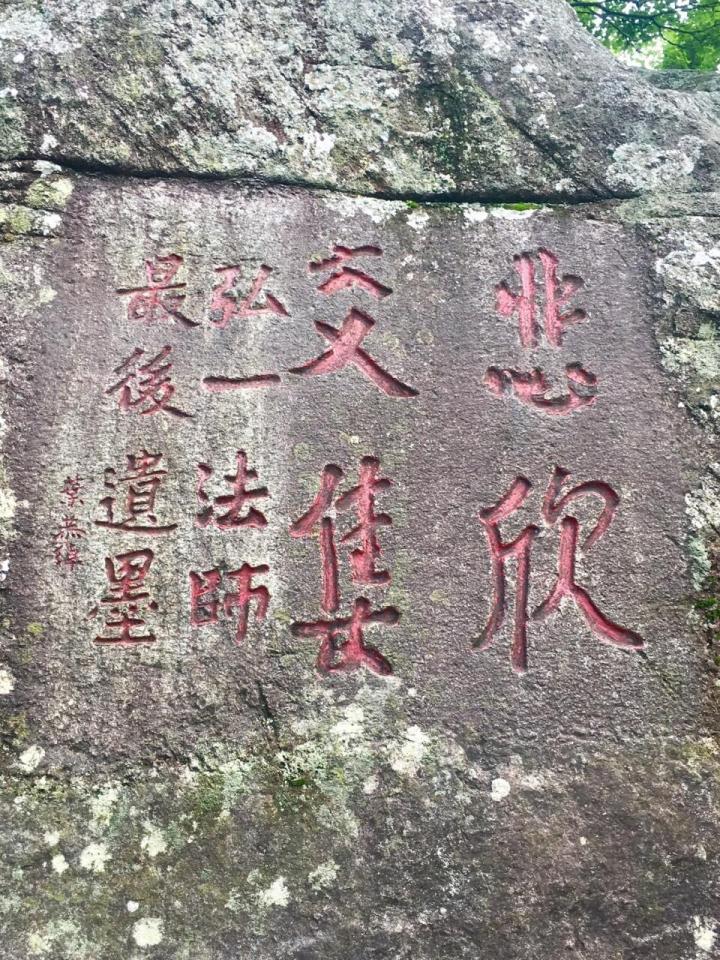 悲欣
交集
弘一法師
最後遺墨
葉恭綽